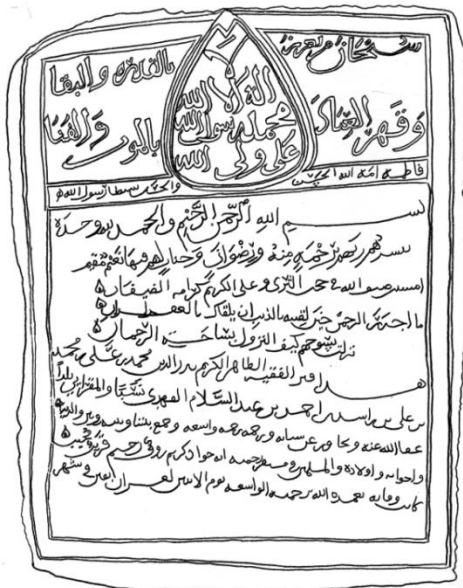 سبحان من تعزز بالقدرة والبقا
وقهر العباد بالموت والفنا
لا اله الا الله
محمد رسول الله
علي ولي الله
فاطمة امة الله الحسن
والحسين سبطا رسول الله
بسم الله الرحمن الرحيم والحمد لله وحده
يبشرهم ربهم برحمة منه ورضوان وجنات لهم فيها نعيم مقيم
امسيت ضيف الله في الثرى وعلى الكريم كرامة الضيفان
الرحمن يلقاك بالغفران
كيف النزول بساحة الرحمان
هذا قبر الفقيه الطاهر الكريم بدر الدين محمد بن علي بن محمد
بن علي بن اسد بن احمد بن عبد السلام نسبا بلدا
عفا الله عنه وتجاوز عن سياته ورحمه رحمة واسعة وجمع بيننا وبينه وبين
واخوانه واولاده والمسلمين رحمته انه جواد كريم رؤوف رحيم قريب مجيب
كانت وفاته تغمده الله برحمته الواسعة يوم الاثنين في شهر